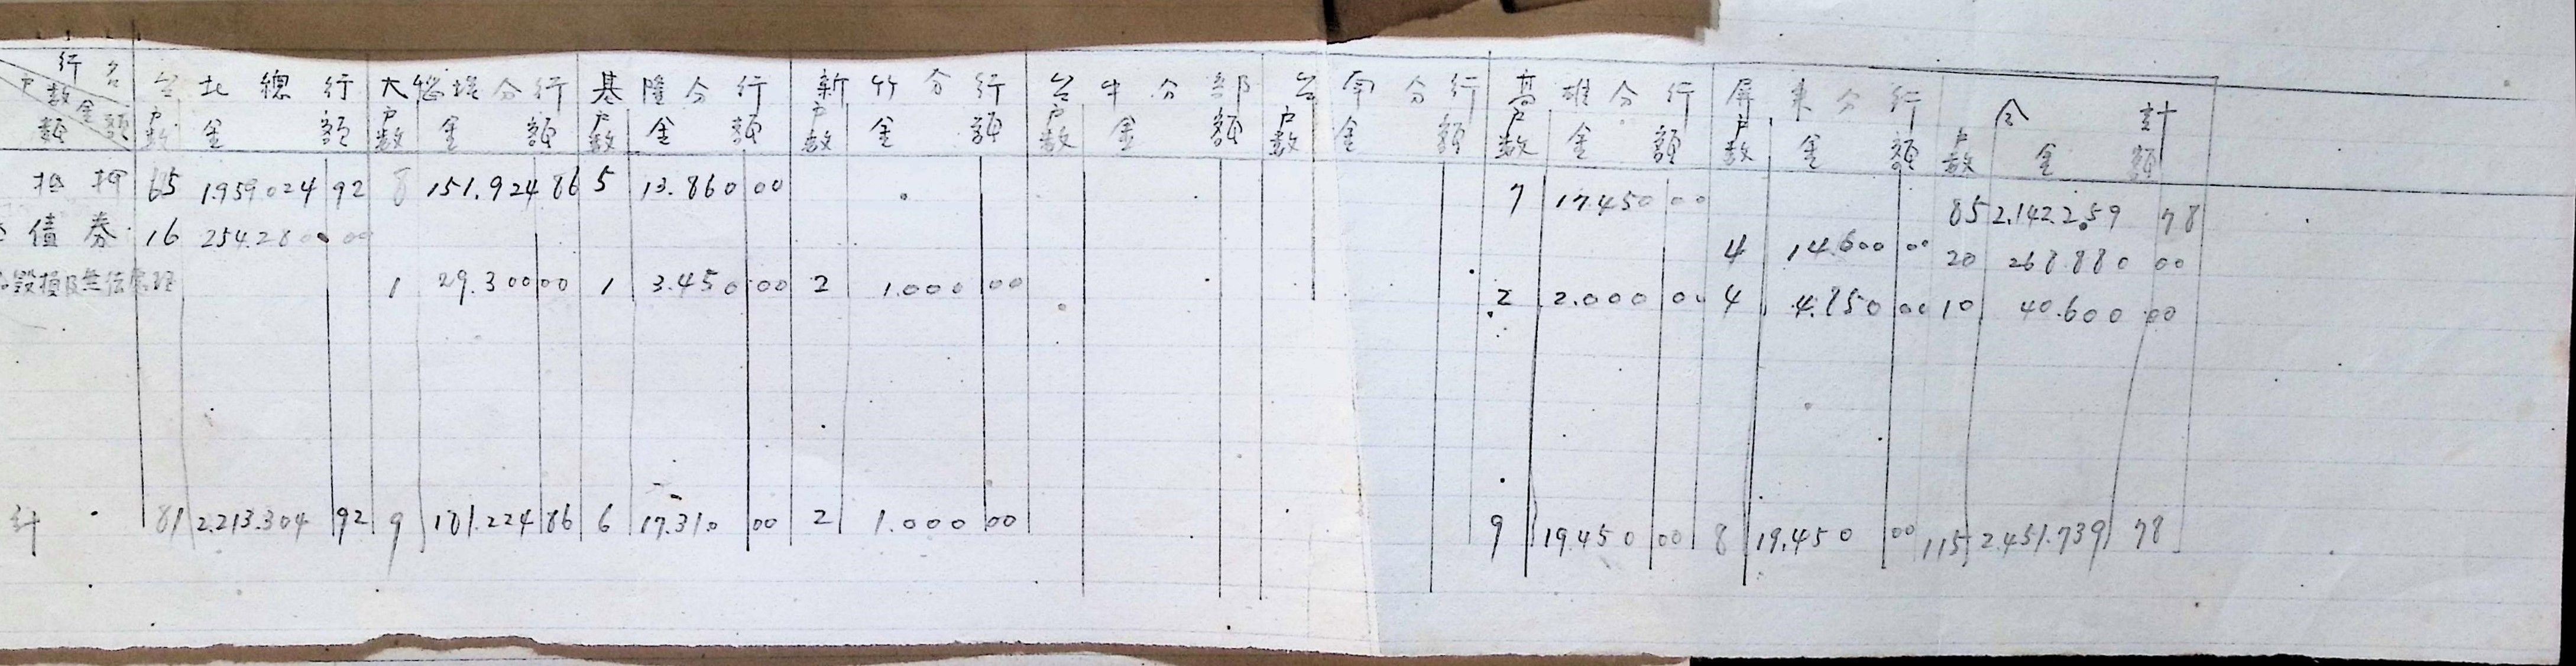 行名
戶數金額
台北總行 大稻埕分行 基隆分行 新竹分行 台中分部 台南分行 高雄分行 屏東分行 合計
戶數 金額 戶數 金額 戶數 金額 戶數 金額 戶數 金額 戶數 金額 戶數 金額 戶數 金額 戶數 金額
抵押 65 1.959.024 92 8 151.924 86 5 13.860 00 7 17.450 00 85 2.142.259 78
債券 16 254.280 00 4 14.600 00 20 268.880 00
毀損及無法處理 1 29.300 00 1 3.450 00 2 1.000 00 2 2.000 00 4 4.850 00 10 40.600 00
計 81 2.213.304 92 9 181.224 86 6 17.310 00 2 1.000 00 9 19.450 00 8 19.450 00 115 2.451.739 78